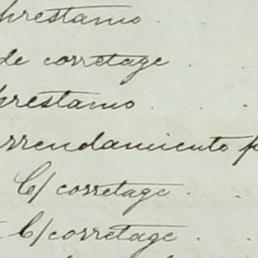 prestamo
de corretage
prestamo
arrendamiento
C/ corretage
C/ corretage